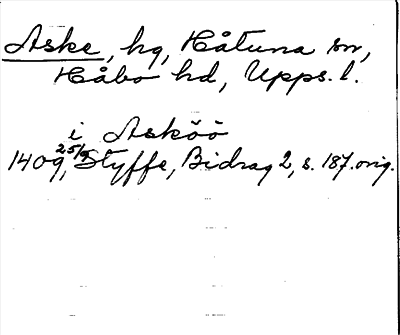 Aske, hg, Håtuna sn,
Håbo hd, Upps. l.
i Asköö
1409 25/5, Styffe, Bidrag 2, s. 187. orig.